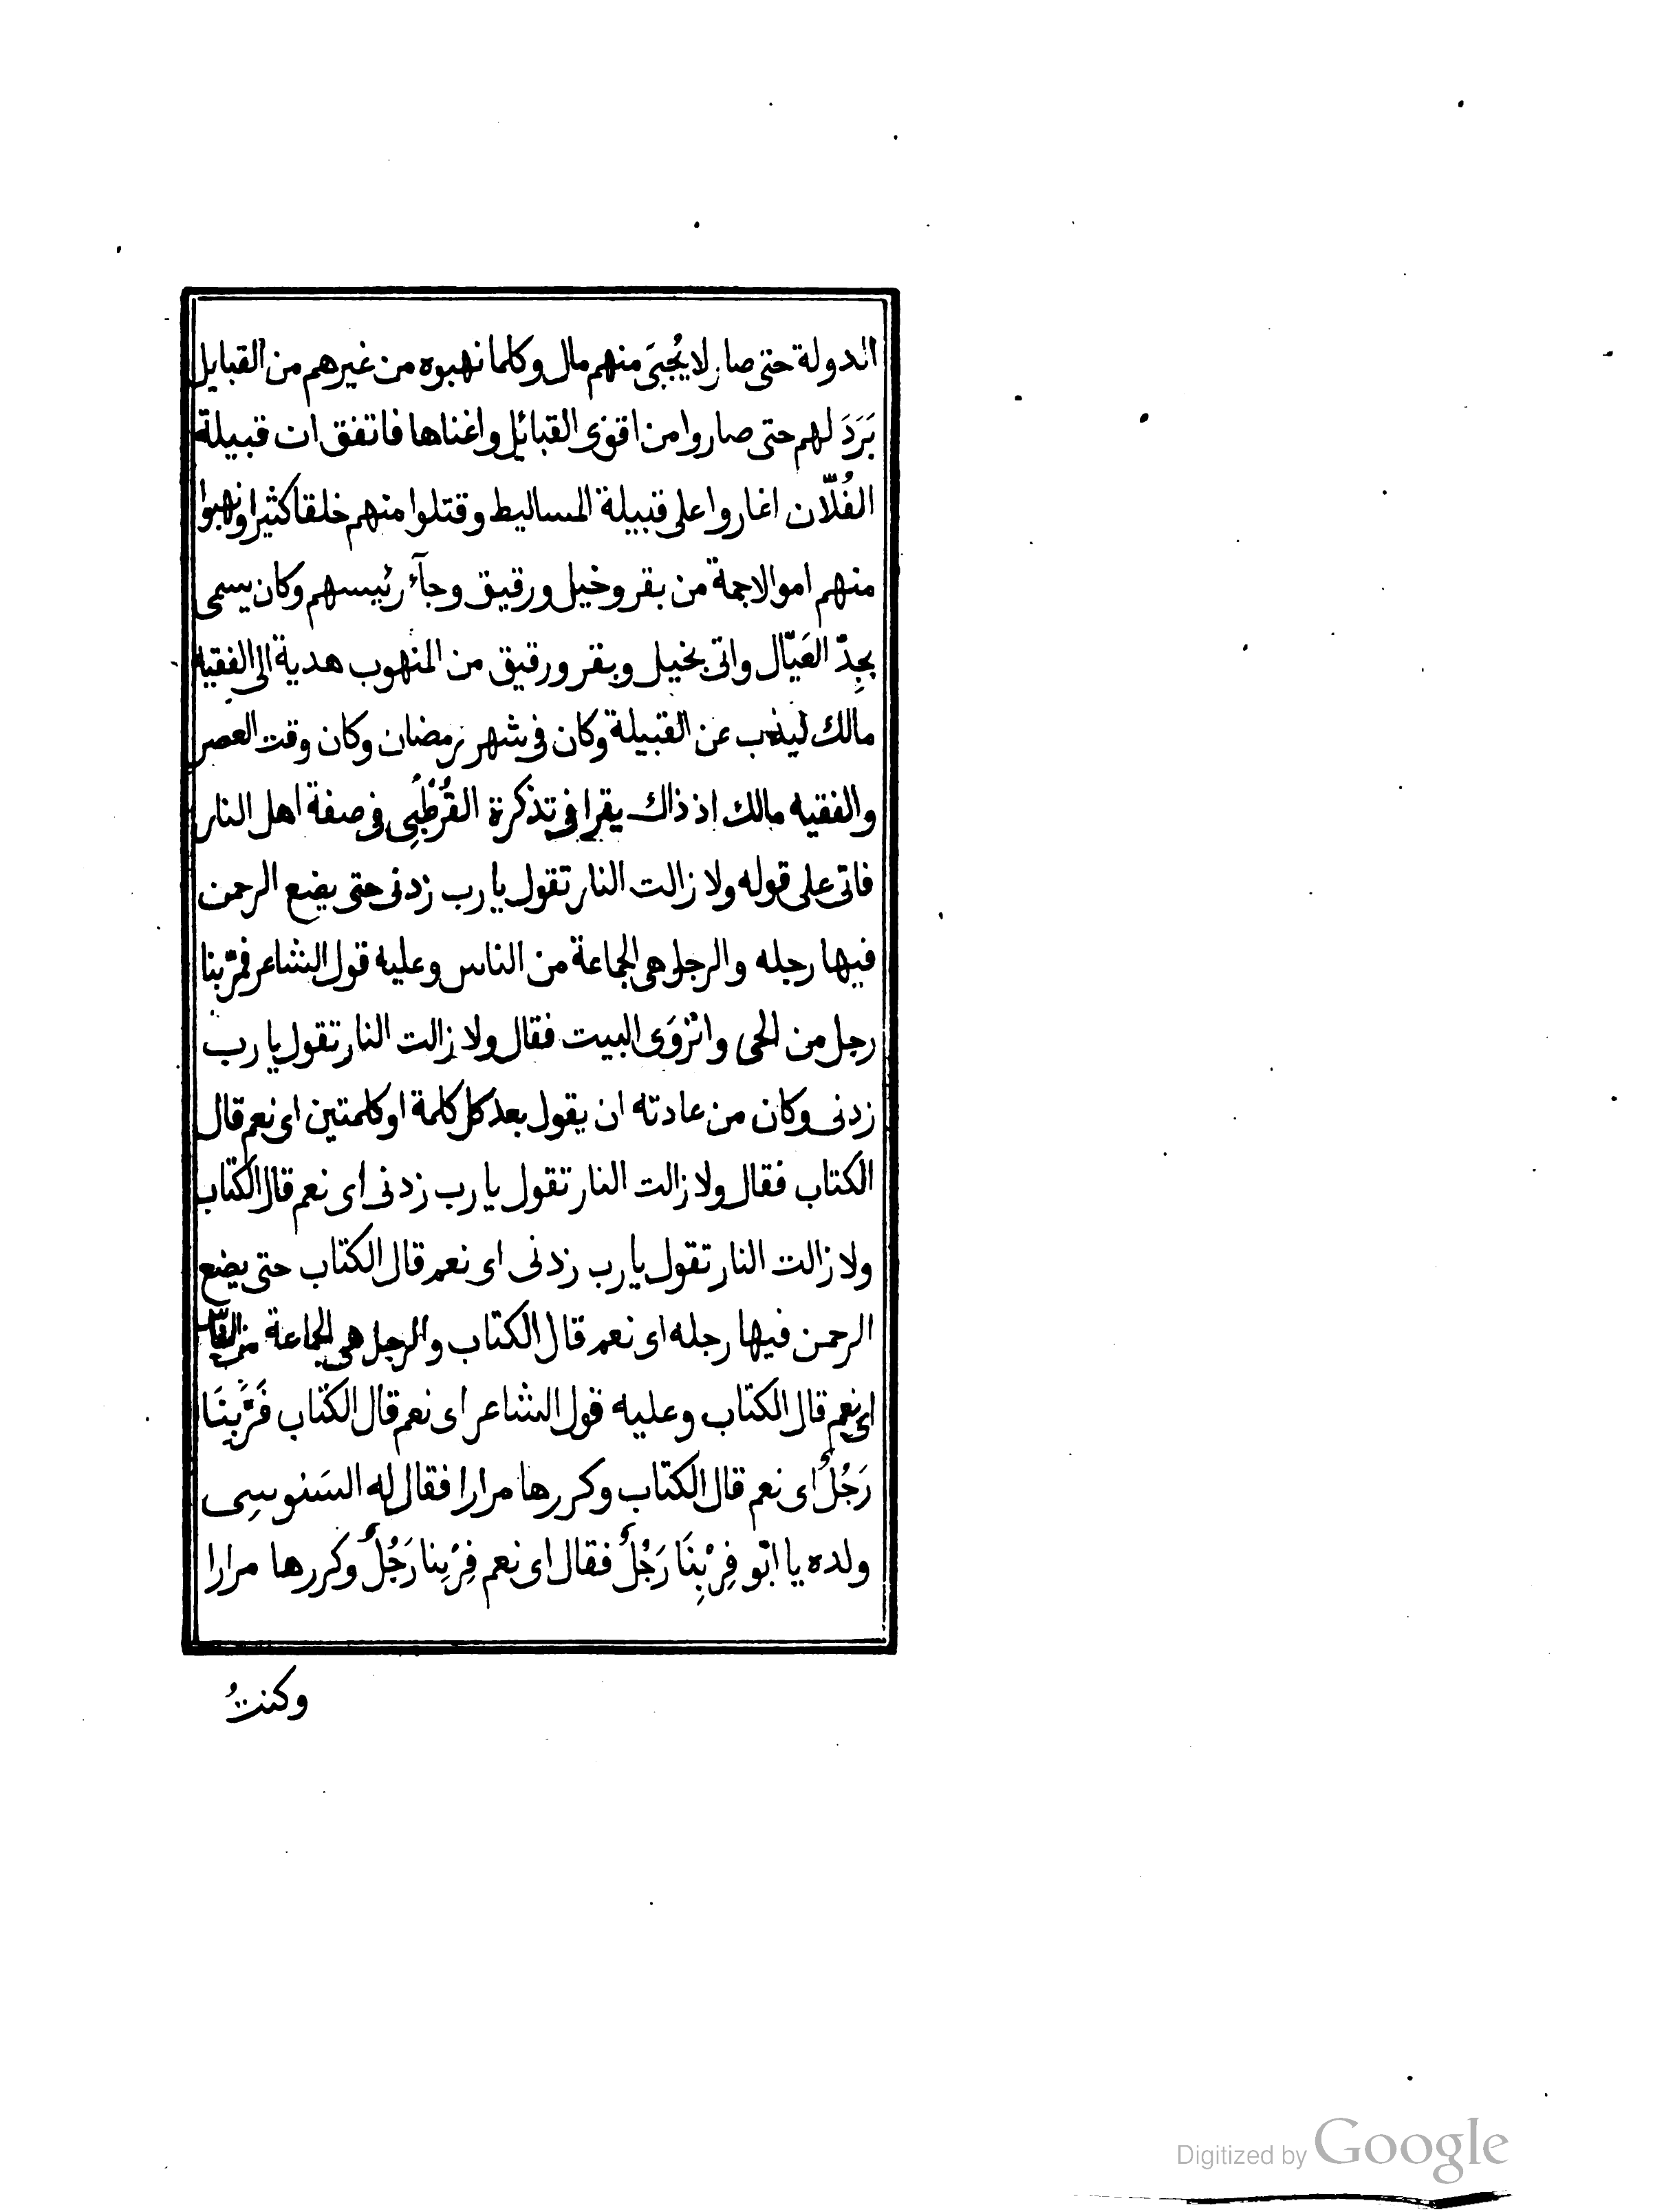 الدولة حتى صار لا يُجبَى منهم مال وكلما نهبوه من غيرهم من القبايل
بَرَدَ لهم حتى صاروا من اقوى القبائل واغناها فاتفق ان قبيلة
الفُلّان اغاروا على قبيلة المساليط وقتلوا منهم خلقا كثيرا ونهبوا
منهم اموالا جمة من بقر وخيل ورقيق وجآء رئيسهم وكان يسمى
بجِدّ العَيّال واتى بخيل وبقر ورقيق من المنهوب هدية الى الفقيه
مالك ليذب عن القبيلة وكان فى شهر رمضان وكان وقت العصر
والفقيه مالك اذ ذاك يقرا فى تذكرة القُرْطُبِى فى صفة اهل النار
فاتى على قوله ولا زالت النار تقول يا رب زدنى حتى يضع الرحمن
فيها رجله والرجل هى الجماعة من الناس وعليه قول الشاعر فمرّ بنا
رجل من الحى وانْزَوَى البيت فقال ولا زالت النار تقول يا رب
زدنى وكان من عادته ان يقول بعد كل كلمة او كلمتين اى نعم قال
الكتاب فقال ولا زالت النار تقول يا رب زدنى اى نعم قال الكتاب
ولا زالت النار تقول يا رب زدنى اى نعم قال الكتاب حتى يضع
الرحمن فيها رجله اى نعم قال الكتاب والرجل هى الجماعة من الناس
اى نعم قال الكتاب وعليه قول الشاعر اى نعم قال الكتاب فَمَرَّ بِنَا
رَجُلٌ اى نعم قال الكتاب وكررها مرارا فقال له السَنوسِى
ولده يا ابّو فِرْبِنَا رَجُلٌ فقال اى نعم فِرْبِنا رَجُلٌ وكررها مرارا
وكنتُ
Digitized by Google